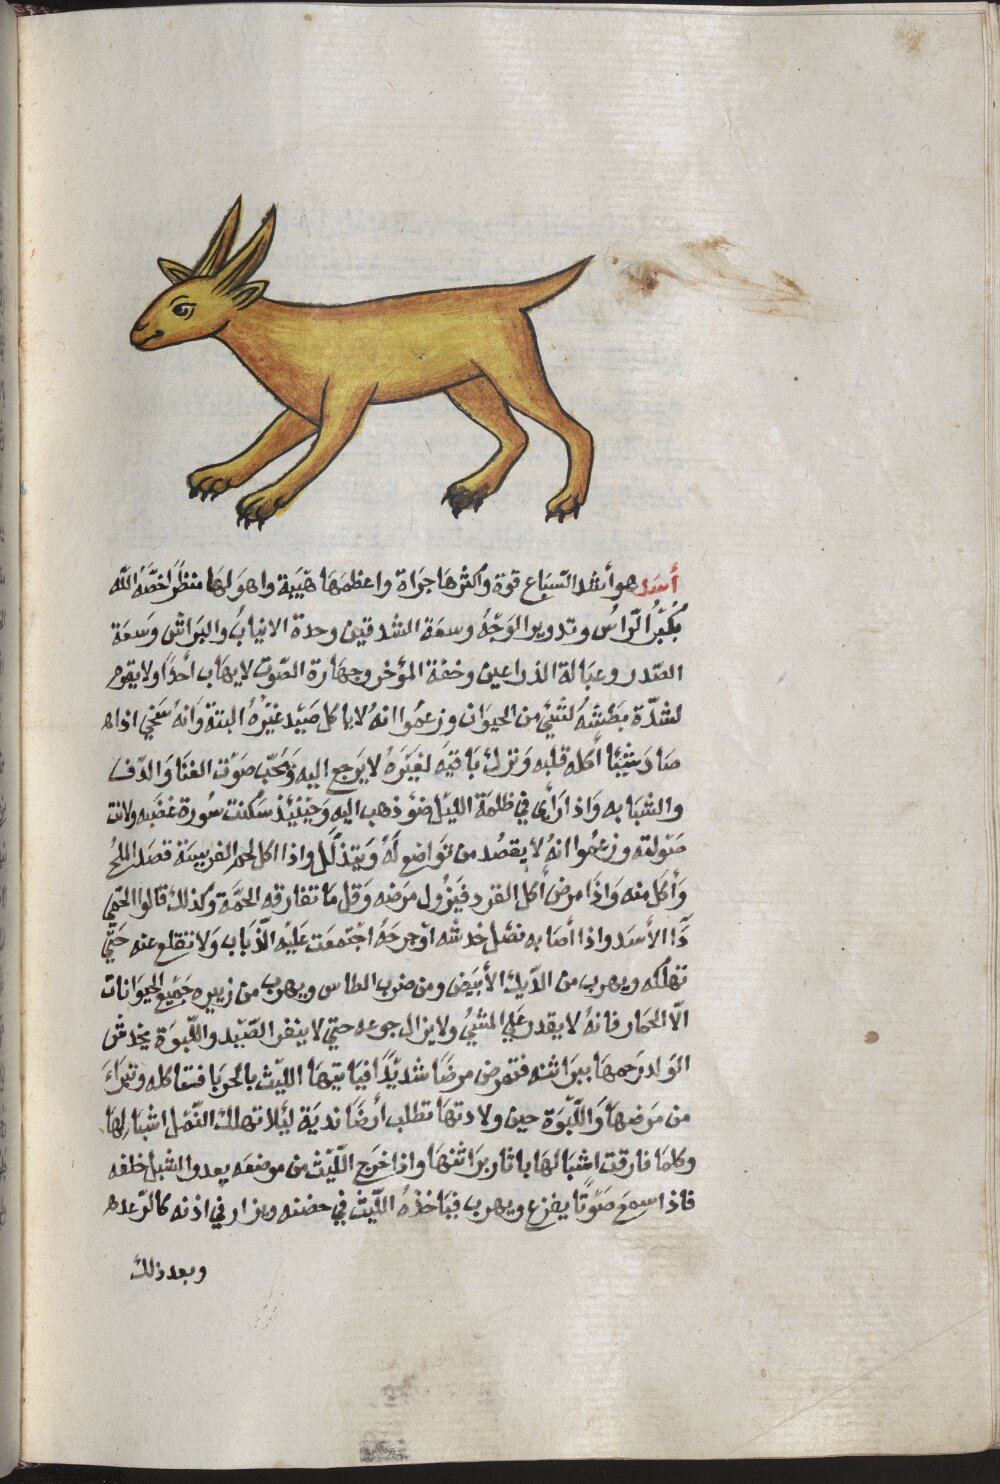 أسد هو أشد السباع قوة وأكثرها جراة واعظمها هيبة واهولها منظرا خصه الله
بكبر الراس وتدوير الوجه وسعة الشدقين وحدة الانياب والبراثن وسعة
الصدر وعبالة الذراعين وخفة المؤخر وجهارة الصوت لا يهاب أحدا ولا يقوم
لشدة بطشه لشئي من الحيوان وزعموا انه لا ياكل صيد غيره البتة وانه سخي اذا
صاد شيئا أكله قلبه وترك باقيه لغيره لا يرجع اليه ويحب صوت الغنا والدف
والشبابه واذا رأى في ظلمة الليل ضؤ ذهب اليه وحينيذ سكنت سورة غضبه ولانت
صولته وزعموا انه لا يقصد من تواضع له ويتذلل واذا اكل لحم الفريسة قصد الملح
وأكل منه واذا مرض أكل القرد فيزول مرضه وقل ما تفارقه الحمة وكذلك قالوا الحمي
دا الأسد واذا أصابه نصل خدشه أو جرحه اجتمعت عليه الذباب ولا تقلع عنه حتي
تهلكه ويهرب من الديك الأبيض ومن ضرب الطاس ويهرب من زييره جميع الحيوانات
الا الحمار فانه لا يقدر علي المشي ولا يزال جوعه حتي لا ينفر الصيد واللبوة يخدش
الولد رحمها ببراثنه فتمرض مرضا شديدا فياتيها الليث بالحربا فتاكله وتبراء
من مرضها واللبوة حين ولادتها تطلب أرضا ندية ليلا تهلك النمل اشبالها
وكلما فارقت اشبالها باثار براثنها واذا خرج الليث من موضعه يعدو الشبل خلفه
فاذا سمع صوتا يفزع ويهرب فياخذه الليث في حضنه ويزار في اذنه كالرعد
وبعد ذلك